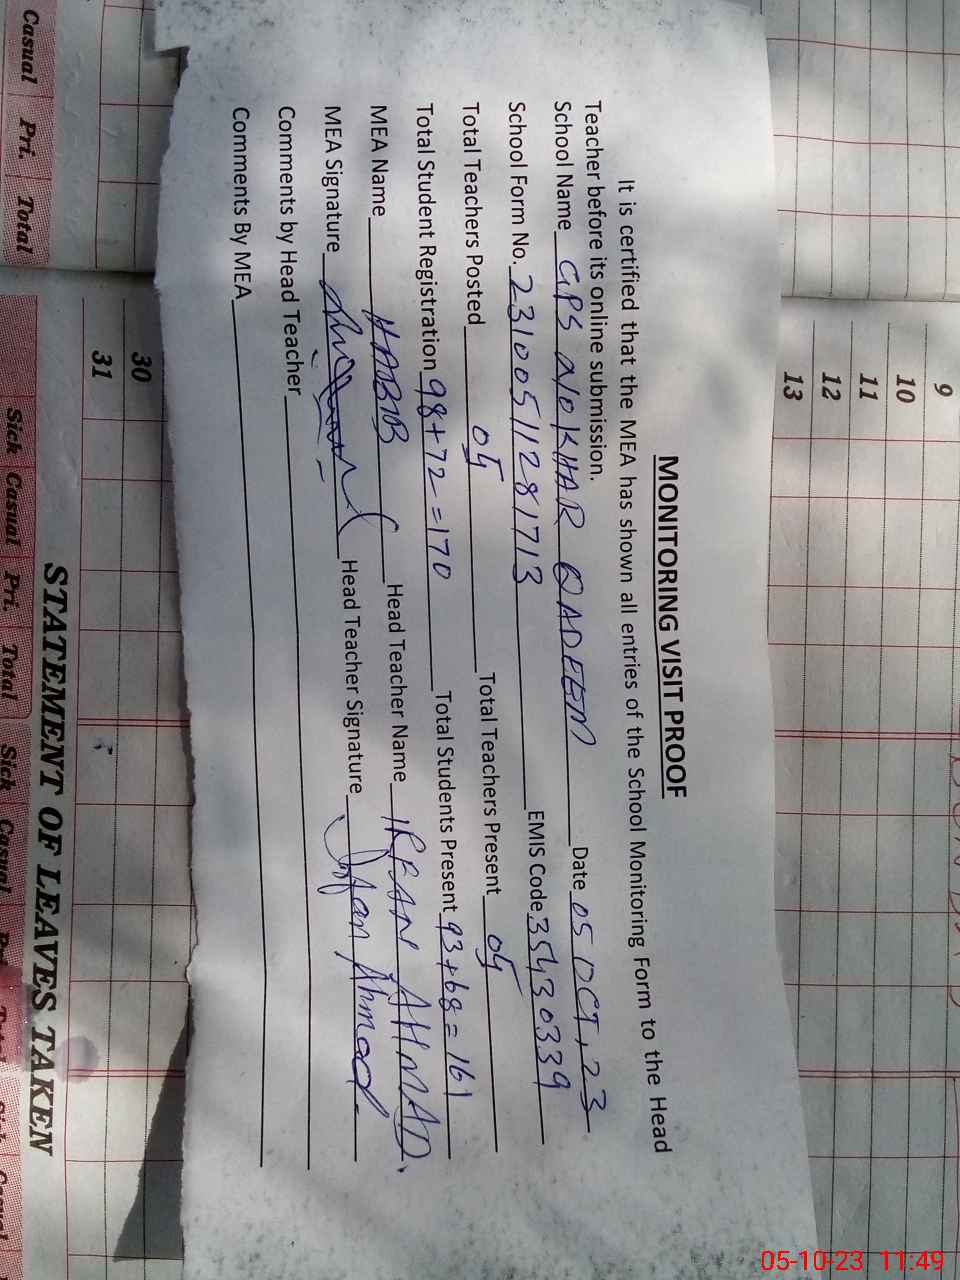 MONITORING VISIT PROOF
It is certified that the MEA has shown all entries of the School Monitoring Form to the Head
Teacher before its online submission.
School Name GPS NOKHAR QADEEM Date 05 OCT, 23
School Form No. 23100511281713 EMIS Code 35430339
Total Teachers Posted 05 Total Teachers Present 05
Total Student Registration 98+72=170 Total Students Present 93+68=161
MEA Name HABIB Head Teacher Name IRFAN AHMAD.
MEA Signature Head Teacher Signature Irfan Ahmad
Comments by Head Teacher
Comments By MEA
9
10
11
12
13
30
31
Casual Pri. Total
Sick Casual Pri. Total Sick Casual
STATEMENT OF LEAVES TAKEN
05-10-23 11:49